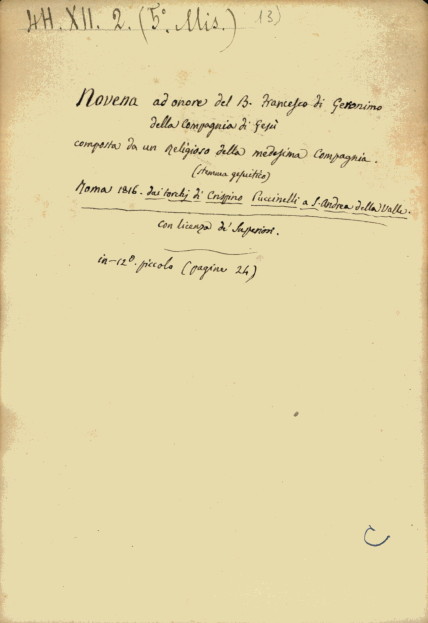 4H. XII. 2. (5° Mis.) 13)
Novena ad onore del B. Francesco di Geronimo
della Compagnia di Gesù
composta da un Religioso della medesima Compagnia.
(stemma gesuitico)
Roma 1816. dai torchj di Crispino Puccinelli a S. Andrea della Valle.
con licenza de' Superiori.
in-12°. piccolo (pagine 24)
C